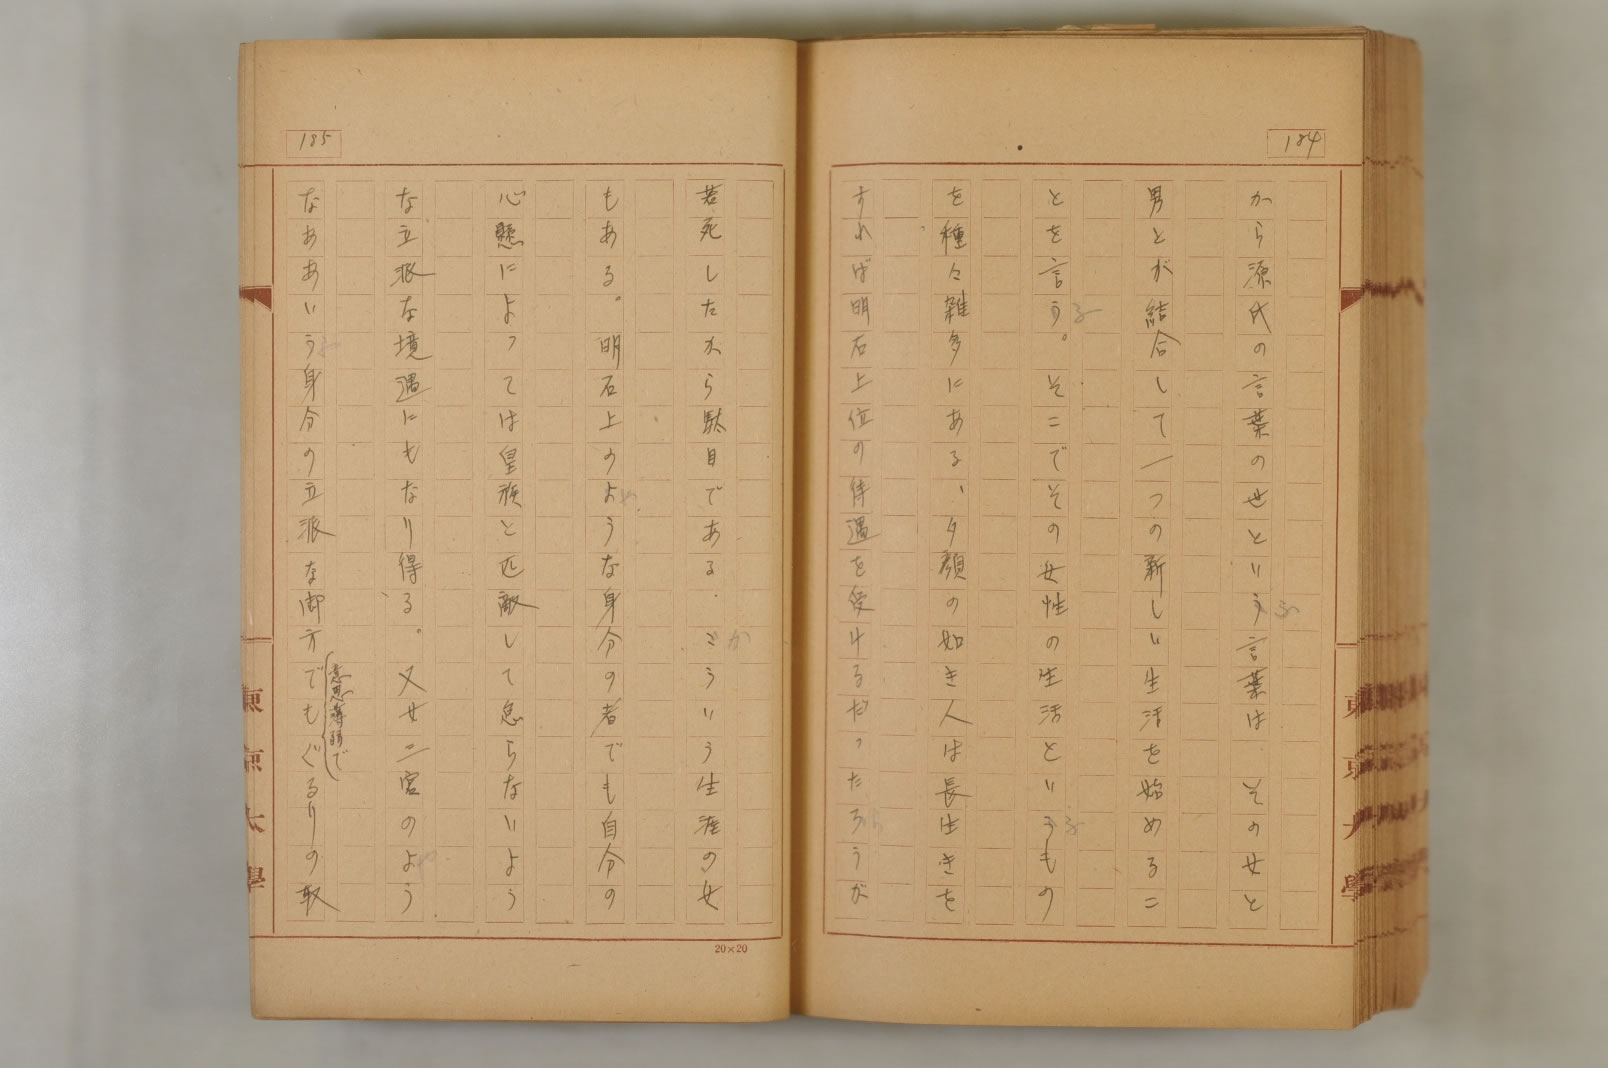 184
から源氏の言葉の世という言葉は　その女と
男とが結合して一つの新しい生活を始めるこ
とを言う。そこでその女性の生活というもの
を種々雑多にある、夕顔の如き人は長生きを
すれば明石上位の待遇を受けるだったろうが
185
若死したから駄目である．こういう生涯の女
もある。明石上のような身分の者でも自分の
心懸によっては皇族と匹敵して怠らないよう
な立派な境遇にもなり得る。又女二宮のよう
なああいう身分の立派な御方でもぐるりの取
意思薄弱で
20×20
東京大學
東京大學